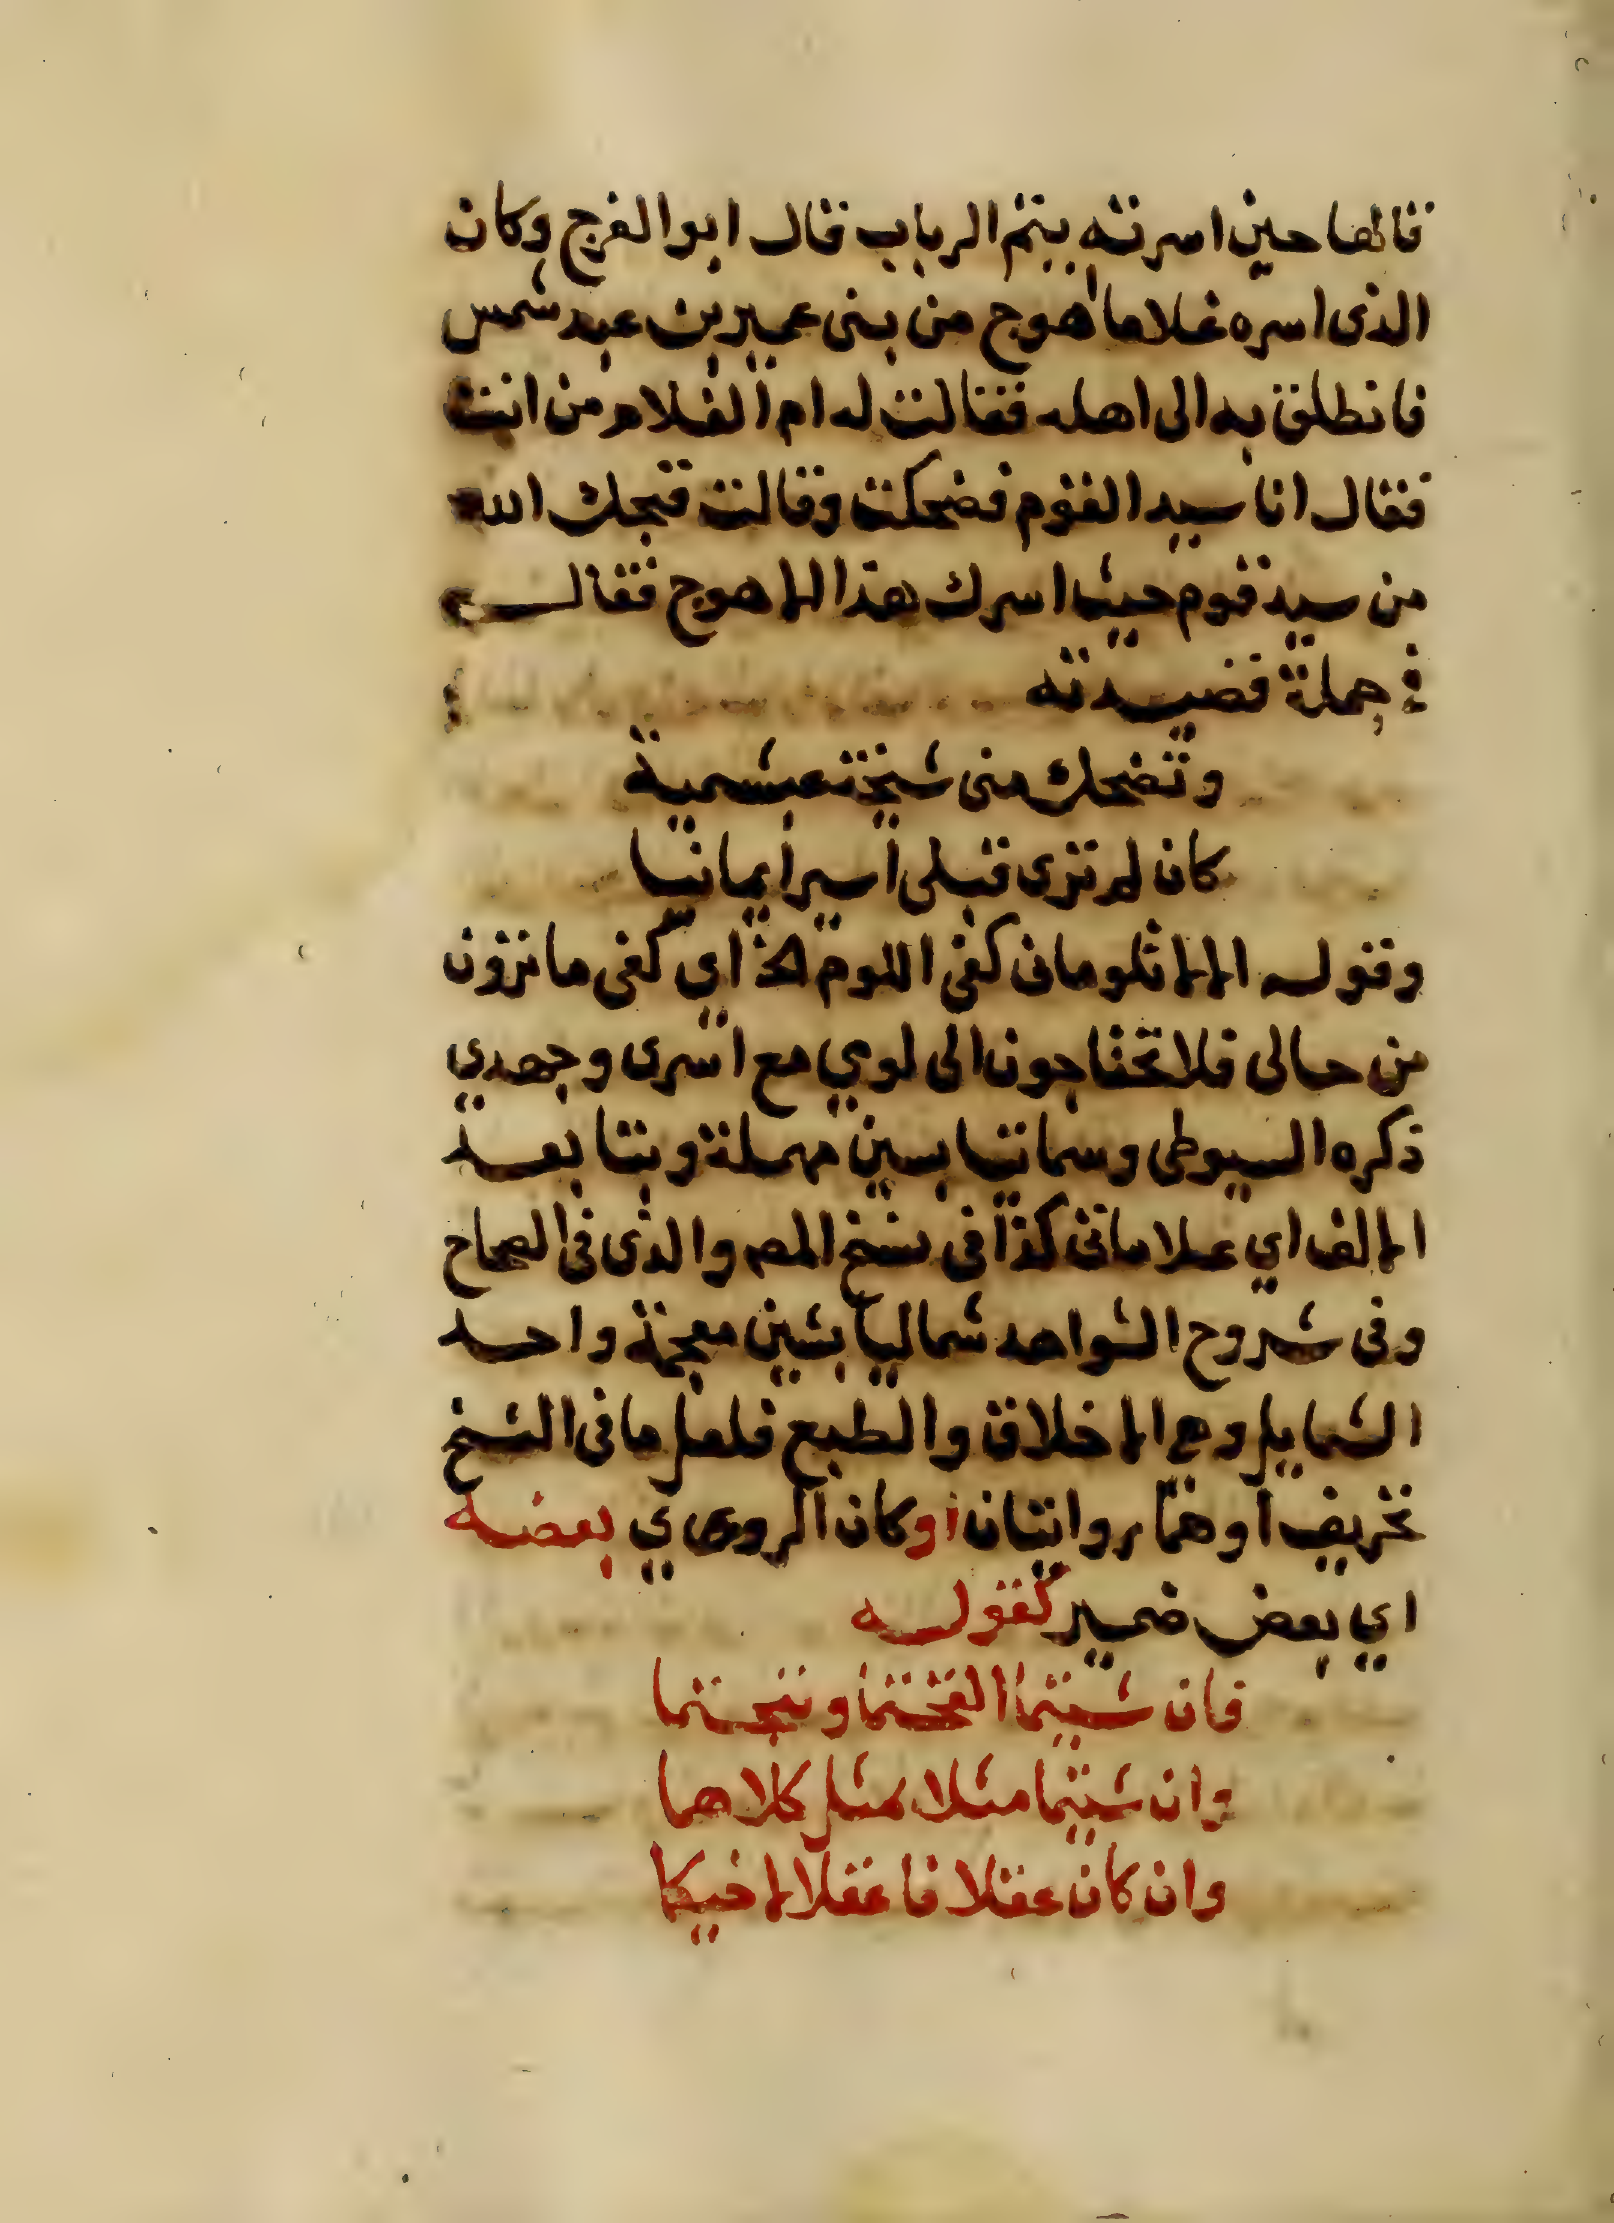 قالها حين اسرته بيتم الرباب قال ابو الفرج وكان
الذى اسره غلاما اهوج من بنى عمير بن عبد شمس
فانطلق به الى اهله فقالت له ام الغلام من انت
فقال انا سيد القوم فضحكت وقالت قبحك الله
من سيد قوم حيث اسرك هذا الاهوج فقال
في جملة قصيدته
وتضحك منى شيخة عبشمية
كان لم ترى قبلى اسيرا يمانيا
وقوله الا لا تلومانى كفى اللوم الخ اي كفى ما ترون
من حالى فلا تحتاجون الى لومي مع اسرى وجهدي
ذكره السيوطى وسماتيا بسين مهملة وبتا بعد
الالف اي علاماتى كذا فى نسخ المص والذى فى الصحاح
وفى شروح الشواهد شماليا بشين معجمة واحد
الشمايل وهى الاخلاق والطبع فلعل ما فى النسخ
تحريف او هما روايتان او كان الروى ي بعضه
اي بعض ضمير كقوله
فان شيتما القحتما ونتجتما
وان شيتما مثلا بمثل كلاهما
وان كان عقلا فاعقلا لاخيكما